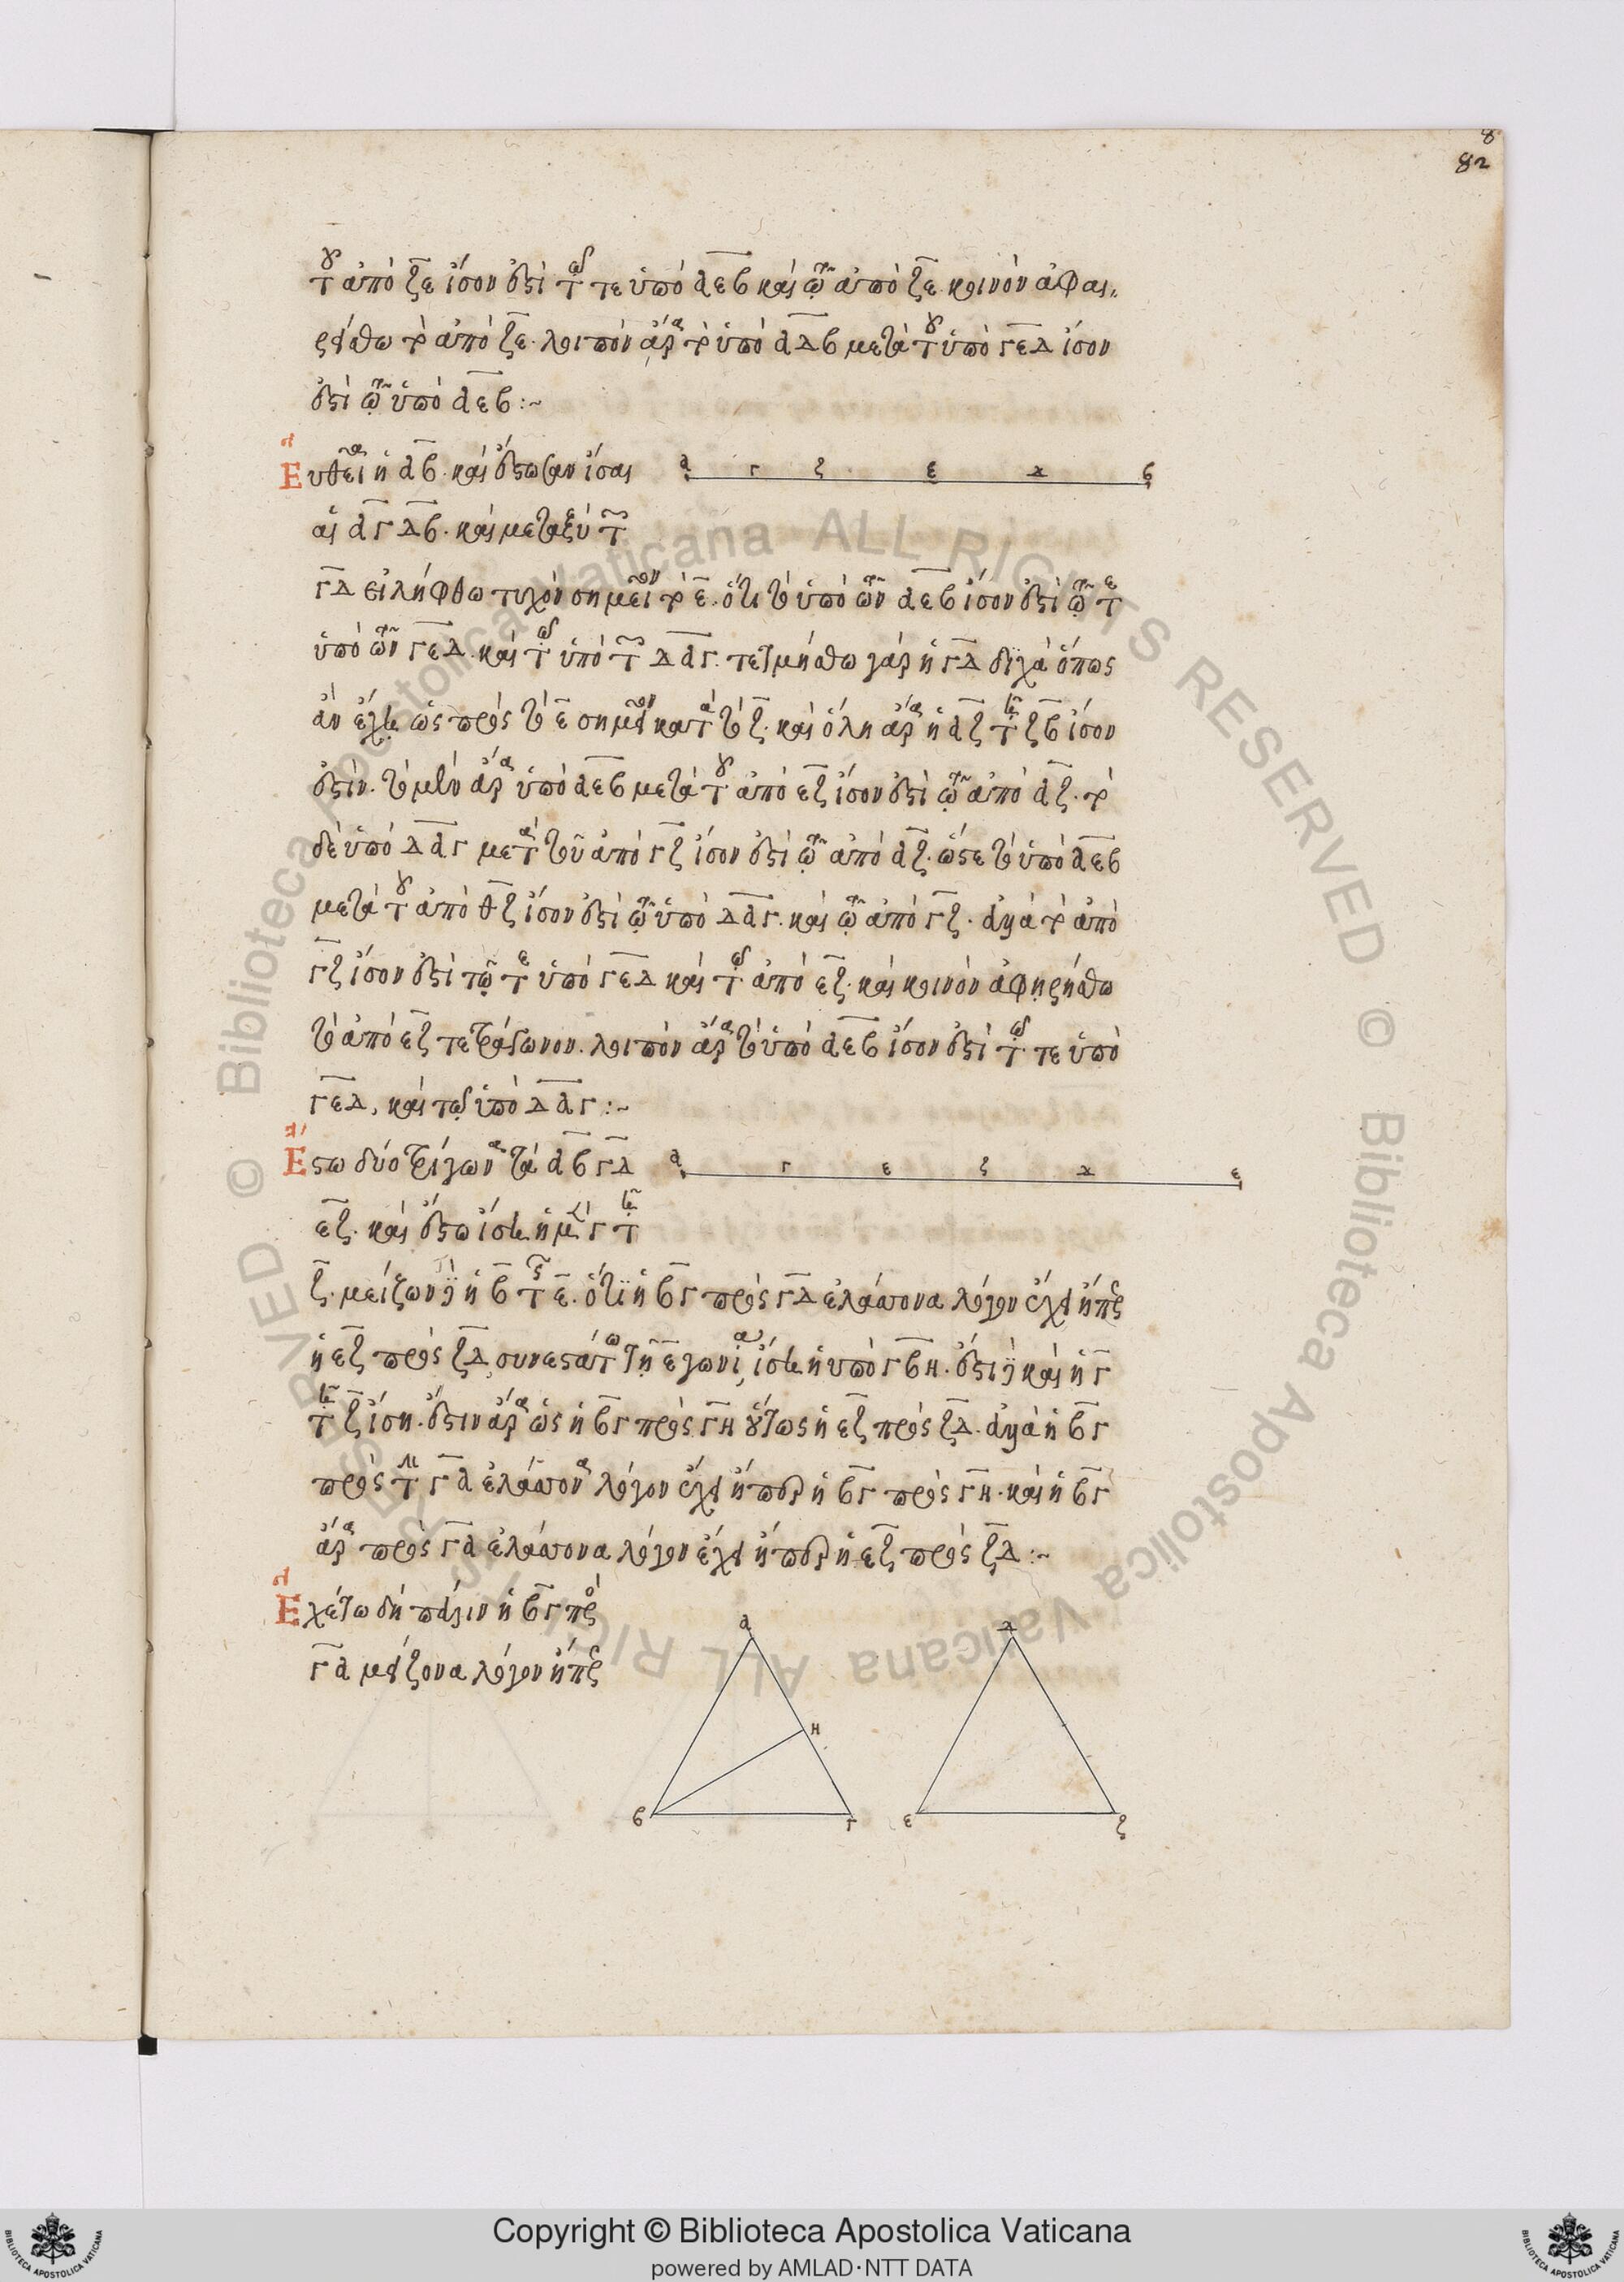 8
82
τοῦ ἀπὸ ζε ἴσον ἐστὶ τῷ τε ὑπὸ αεβ καὶ τῷ ἀπὸ ζε κοινὸν ἀφαι
ρείσθω τὸ ἀπὸ ζε. λοιπὸν ἄρα τὸ ὑπὸ αΔβ μετὰ τοῦ ὑπὸ γεΔ ἴσον
ἐστὶ τῷ ὑπὸ αεβ :~
Εὐθεῖα ἡ αβ. καὶ ἔστωσαν ἴσαι
α γ ζ ε Δ β
αἱ αγ Δβ. καὶ μεταξὺ τῶν
γΔ εἰλήφθω τυχὸν σημεῖον τὸ ε. ὅτι τὸ ὑπὸ τῶν αεβ ἴσον ἐστὶ τῷ τε
ὑπὸ τῶν γεΔ. καὶ τῷ ὑπὸ τῶν Δαγ. τετμήσθω γὰρ ἡ γΔ δίχα ὅπως
ἂν ἔχῃ ὡς πρὸς τὸ ε σημεῖον κατὰ τὸ ζ. καὶ ὅλη ἄρα ἡ αζ τῇ ζβ ἴσον
ἐστὶν. τὸ μὲν ἄρα ὑπὸ αεβ μετὰ τοῦ ἀπὸ εζ ἴσον ἐστὶ τῷ ἀπὸ αζ. τὸ
δὲ ὑπὸ Δαγ μετὰ τοῦ ἀπὸ γζ ἴσον ἐστὶ τῷ ἀπὸ αζ. ὥστε τὸ ὑπὸ αεβ
μετὰ τοῦ ἀπὸ θζ ἴσον ἐστὶ τῷ ὑπὸ Δαγ. καὶ τῷ ἀπὸ γζ. ἀλλὰ τὸ ἀπὸ
γζ ἴσον ἐστὶ τῷ τε ὑπὸ γεΔ καὶ τῷ ἀπὸ εζ. καὶ κοινὸν ἀφῃρήσθω
τὸ ἀπὸ εζ τετράγωνον. λοιπὸν ἄρα τὸ ὑπὸ αεβ ἴσον ἐστὶ τῷ τε ὑπὸ
γεΔ, καὶ τῷ ὑπὸ Δαγ :~
Ἔστω δύο τρίγωνα τὰ αβγΔ
α γ ε ζ Δ ε
εζ. καὶ ἔστω ἴση ἡ μὲν γ τῇ
ζ. μείζων δὲ ἡ β τῆς ε. ὅτι ἡ βγ πρὸς γΔ ἐλάττονα λόγον ἔχει ἤπερ
ἡ εζ πρὸς ζΔ συνεστάτω τῇ ε γωνίᾳ ἴση ἡ ὑπὸ γβη. ἔστι δὲ καὶ ἡ γ
τῇ ζ ἴση. ἔστιν ἄρα ὡς ἡ βγ πρὸς γη οὕτως ἡ εζ πρὸς ζΔ. ἀλλὰ ἡ βγ
πρὸς τὴν γα ἐλάττονα λόγον ἔχει ἤπερ ἡ βγ πρὸς γη. καὶ ἡ βγ
ἄρα πρὸς γα ἐλάττονα λόγον ἔχει ἤπερ ἡ εζ πρὸς ζΔ :~
Ἐχέτω δὴ πάλιν ἡ βγ πρὸς
γα μείζονα λόγον ἤπερ
α Δ
η
β γ ε ζ
© Biblioteca Apostolica Vaticana ALL RIGHTS RESERVED © Biblioteca Apostolica Vaticana ALL RIGHTS RESERVED
Copyright © Biblioteca Apostolica Vaticana
powered by AMLAD·NTT DATA
BIBLIOTECA APOSTOLICA VATICANA
BIBLIOTECA APOSTOLICA VATICANA